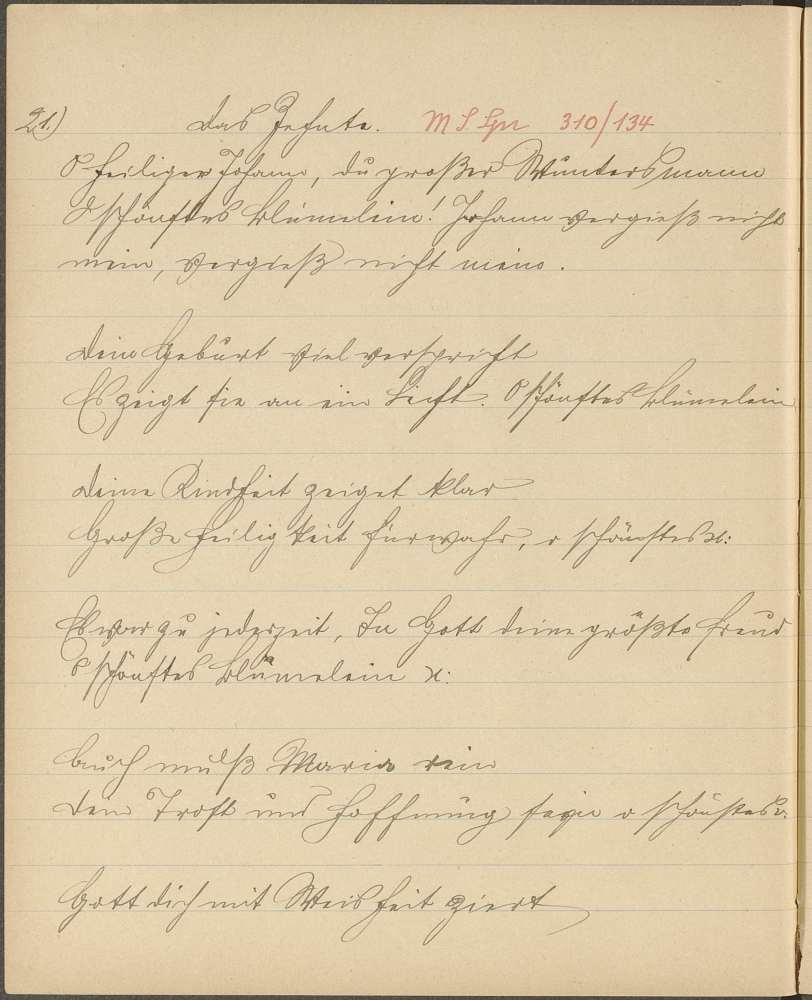 21.) Das Zehnte. M S Lpr 310/134
O heiliger Johann, du großer Wundersmann
O schönstes Blümelein! Johann vergieß nicht
mein, vergieß nicht mein.
Dein Geburt viel verspricht
Es zeigt sie an ein Licht. O schönstes Blümelein
Deine Kindheit zeiget klar
Große Heiligkeit fürwahr, o schönstes ꝛc:
Es war zu jederzeit, In Gott deine größte Freud
O schönstes Blümelein ꝛc:
Auch muß Maria rein
Dein Trost und Hoffnung seyn o schönstes ꝛc:
Gott dich mit Weisheit ziert